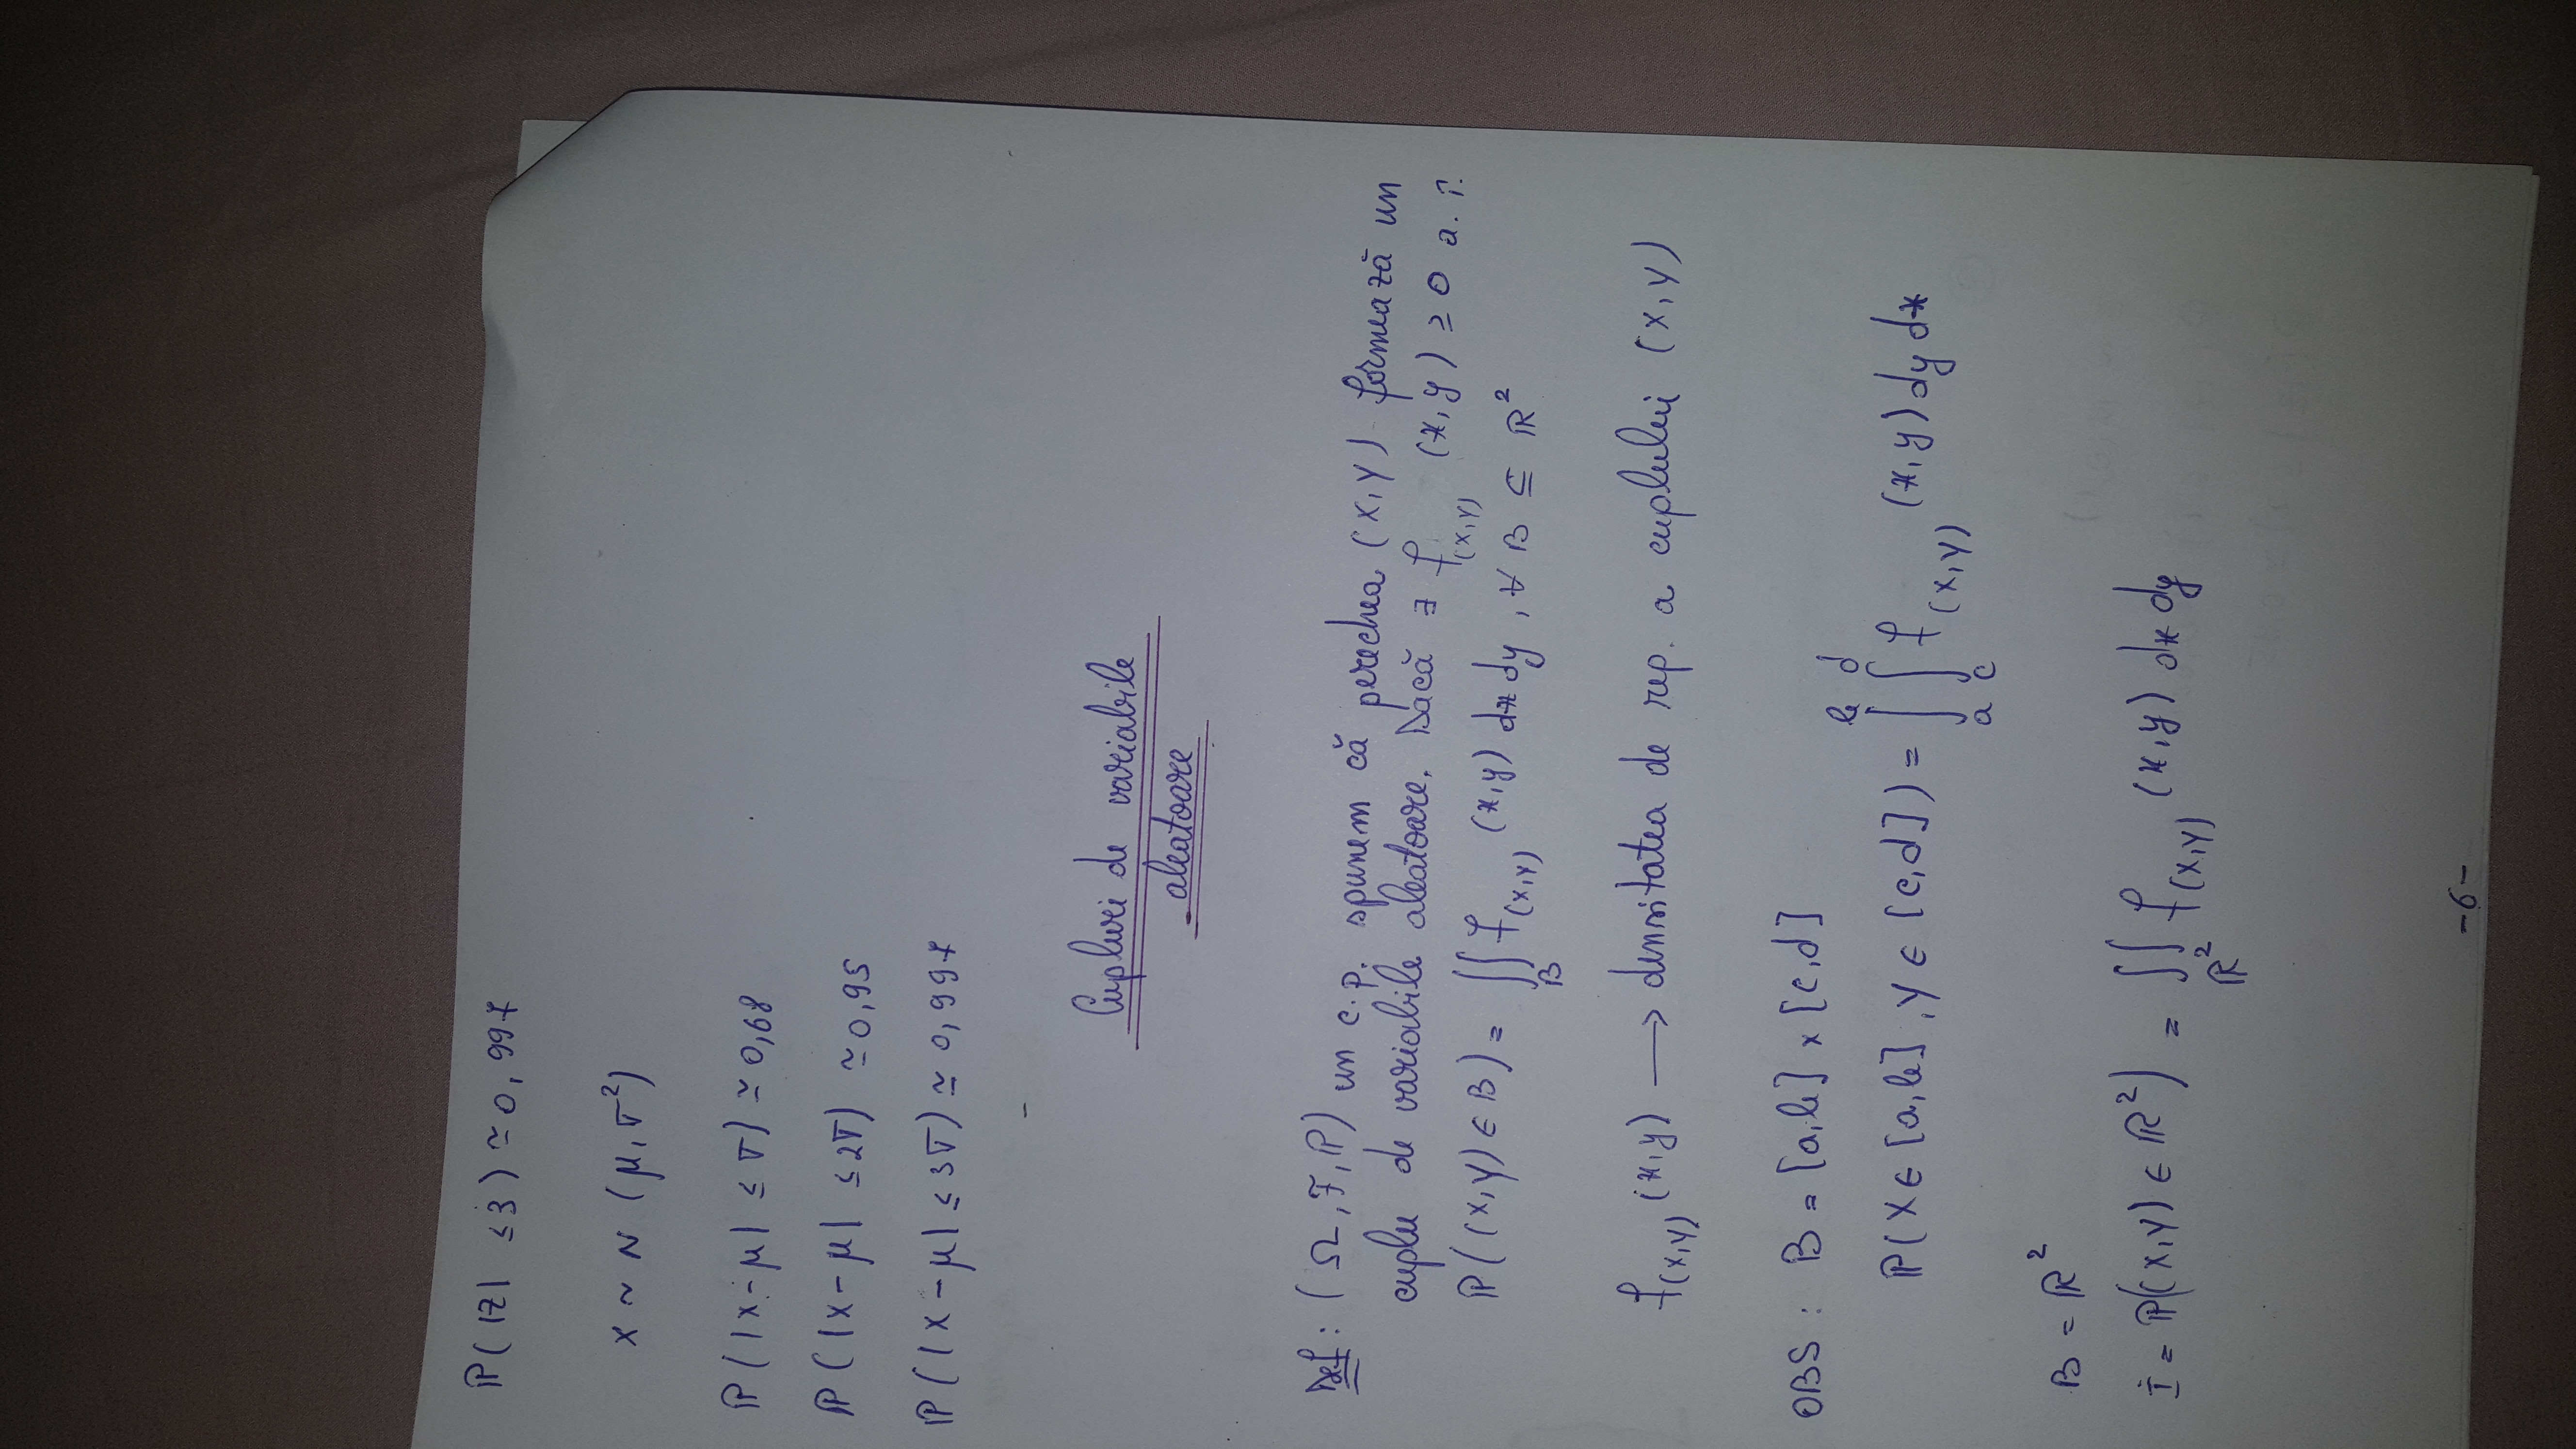 ℙ( |Z| ≤ 3 ) ≃ 0,997
X ~ N (μ, σ²)
ℙ ( |X - μ| ≤ σ) ≃ 0,68
ℙ ( |X - μ| ≤ 2σ) ≃ 0,95
ℙ ( |X - μ| ≤ 3σ) ≃ 0,997
Cupluri de variabile
aleatoare
Def : ( Ω, F, ℙ) un c.p. spunem că perechea (X,Y) formează un
cuplu de variabile aleatoare. Dacă ∃ f_(X,Y) (x,y) ≥ 0 a. î.
ℙ( (X,Y) ∈ B ) = ∬_B f_(X,Y) (x,y) dx dy , ∀ B ⊆ ℝ²
f_(X,Y) (x,y) → densitatea de rep. a cuplului (X,Y)
OBS : B = [a,b] x [c,d]
ℙ( X ∈ [a,b] , Y ∈ [c,d] ) = ∫_a^b ∫_c^d f_(X,Y) (x,y) dy dx
B = ℝ²
1 = ℙ((X,Y) ∈ ℝ²) = ∬_ℝ² f_(X,Y) (x,y) dx dy
-6-